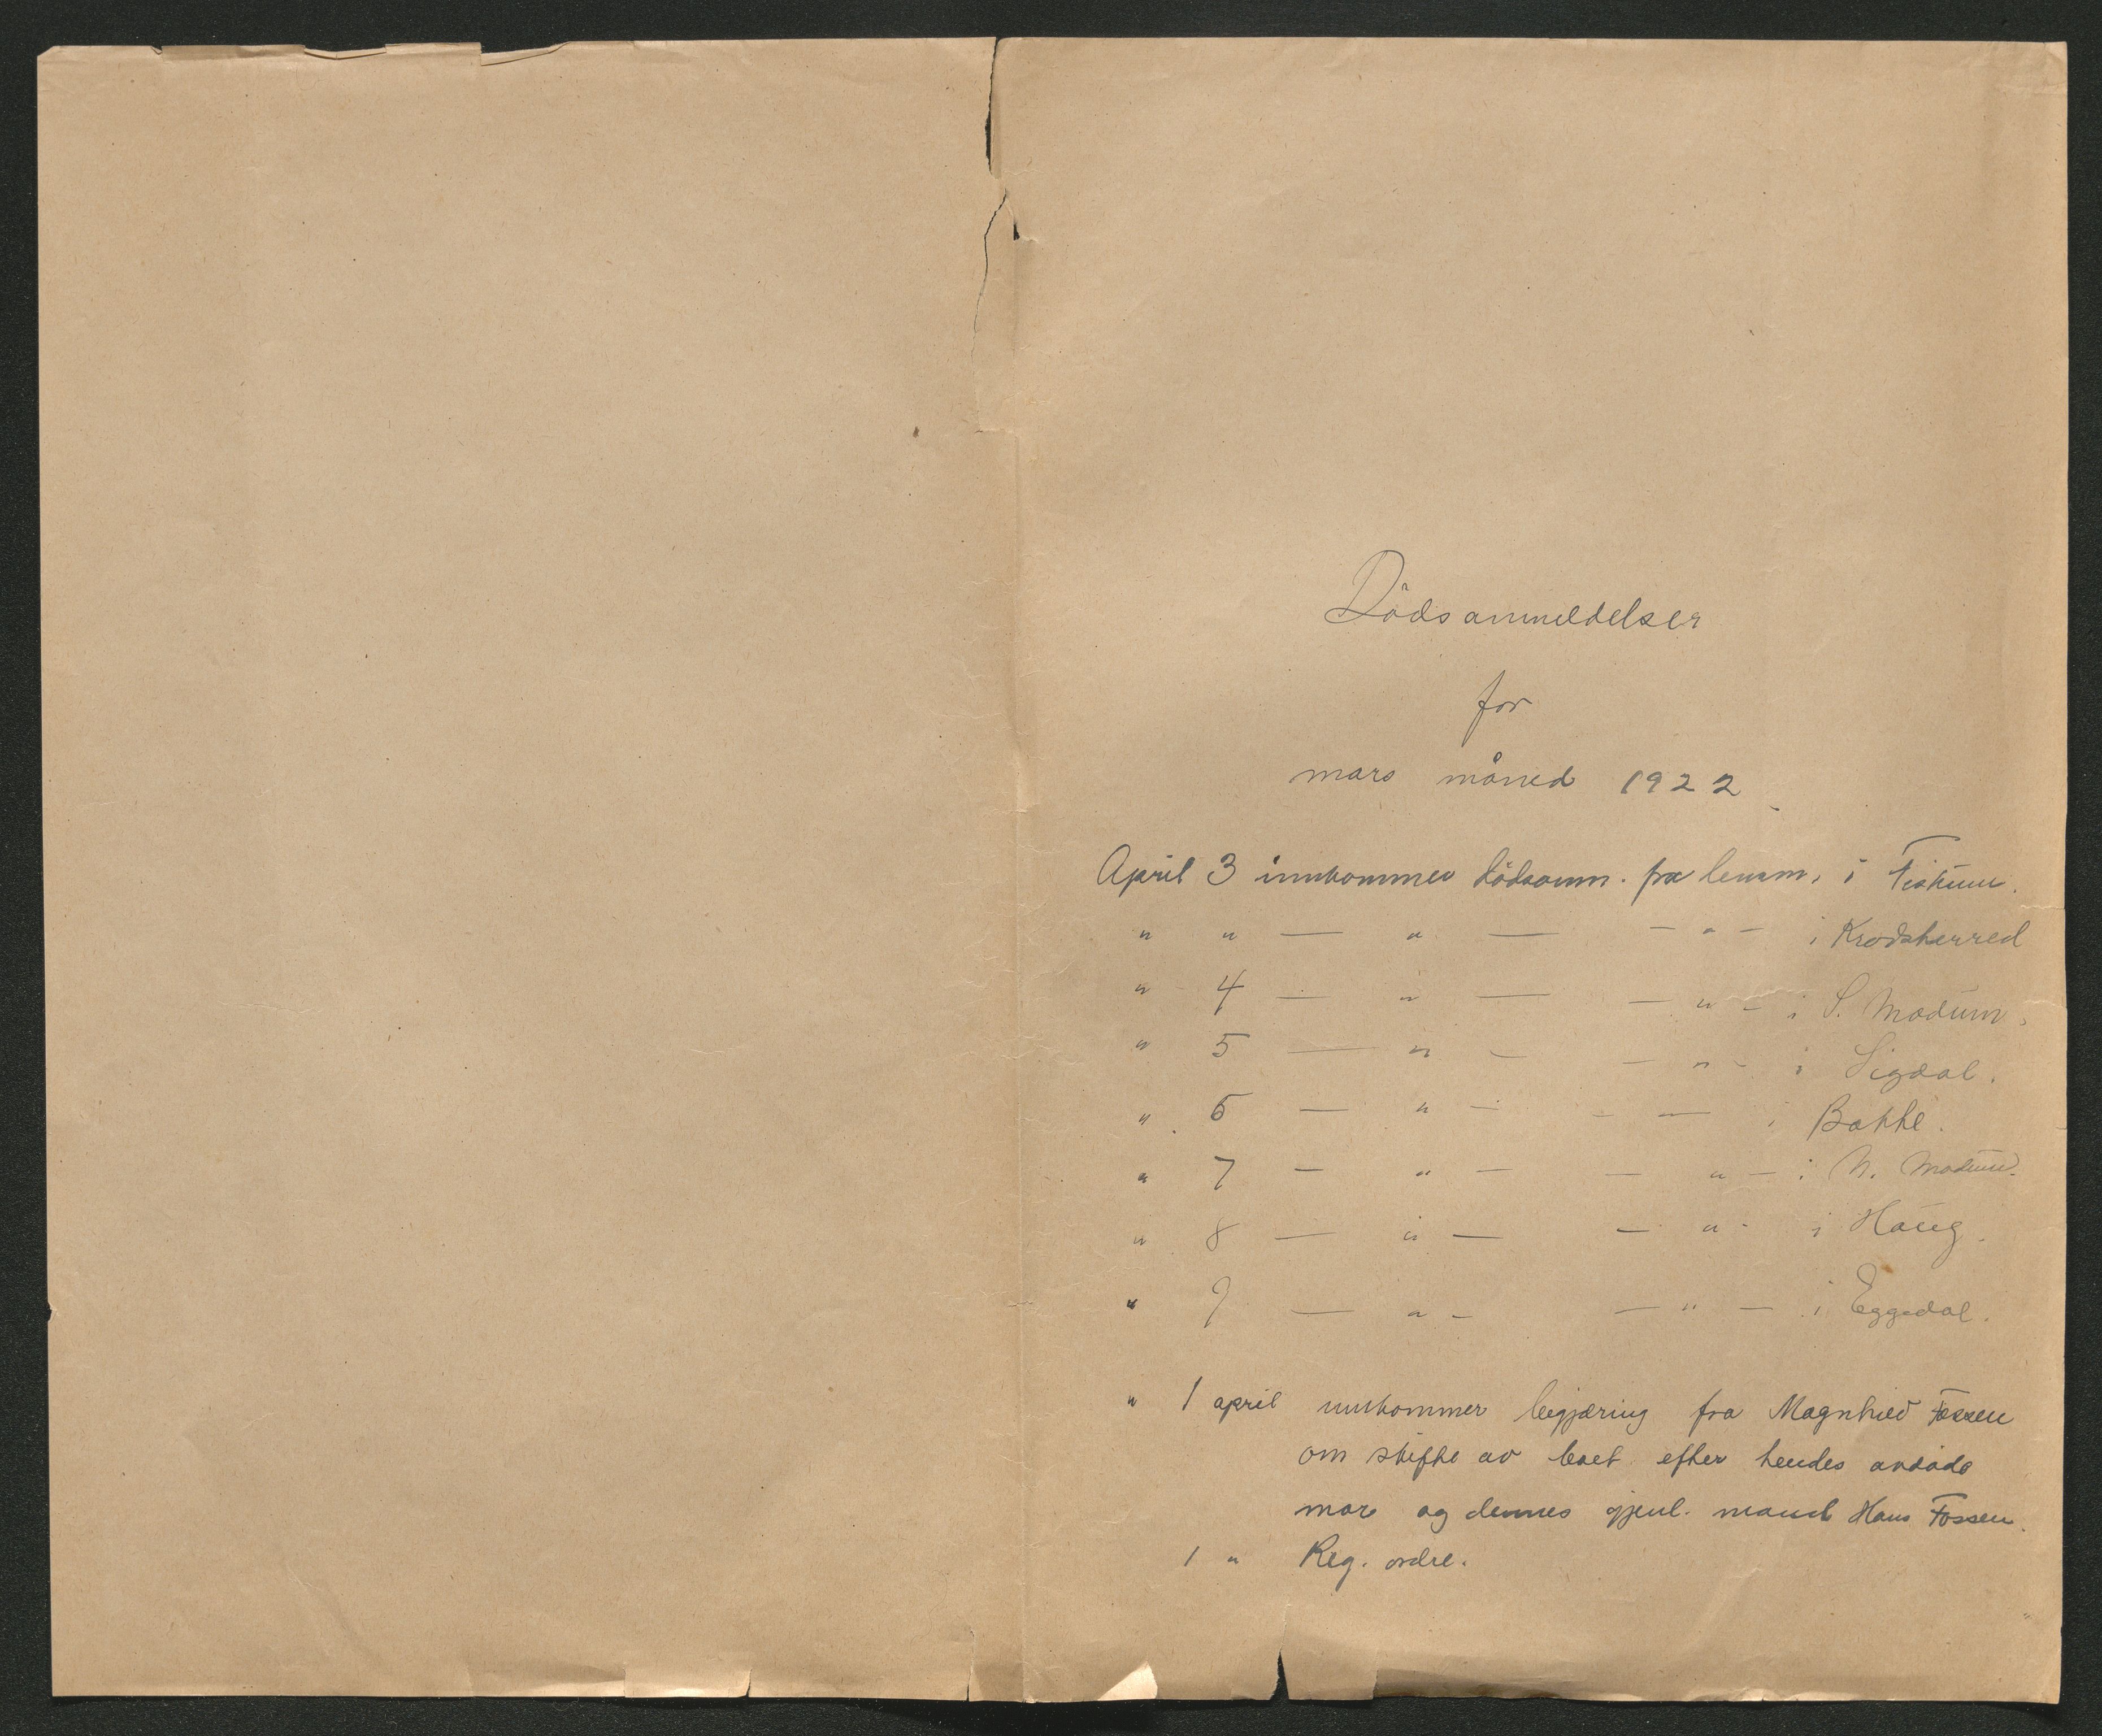 Dödsanmeldelser
for
mars måned 1922
April 3 innkommer dödsanm. fra lensm. i Fiskum.
" " — " — — " — i Krödsherred
" 4 — " — — " — i S. Modum.
" 5 — " — — " — i Sigdal.
" 6 — " — — — i Bakke.
" 7 — " — — " — i N. Modum.
" 8 — " — — " - i Haug.
" 9 — " — — " — i Eggedal.
" 1 april innkommer begjæring fra Magnhild Fossen
om skifte av boet efter hendes avdöde
mor og dennes gjenl. mand Hans Fossen.
1 " Reg. ordre.